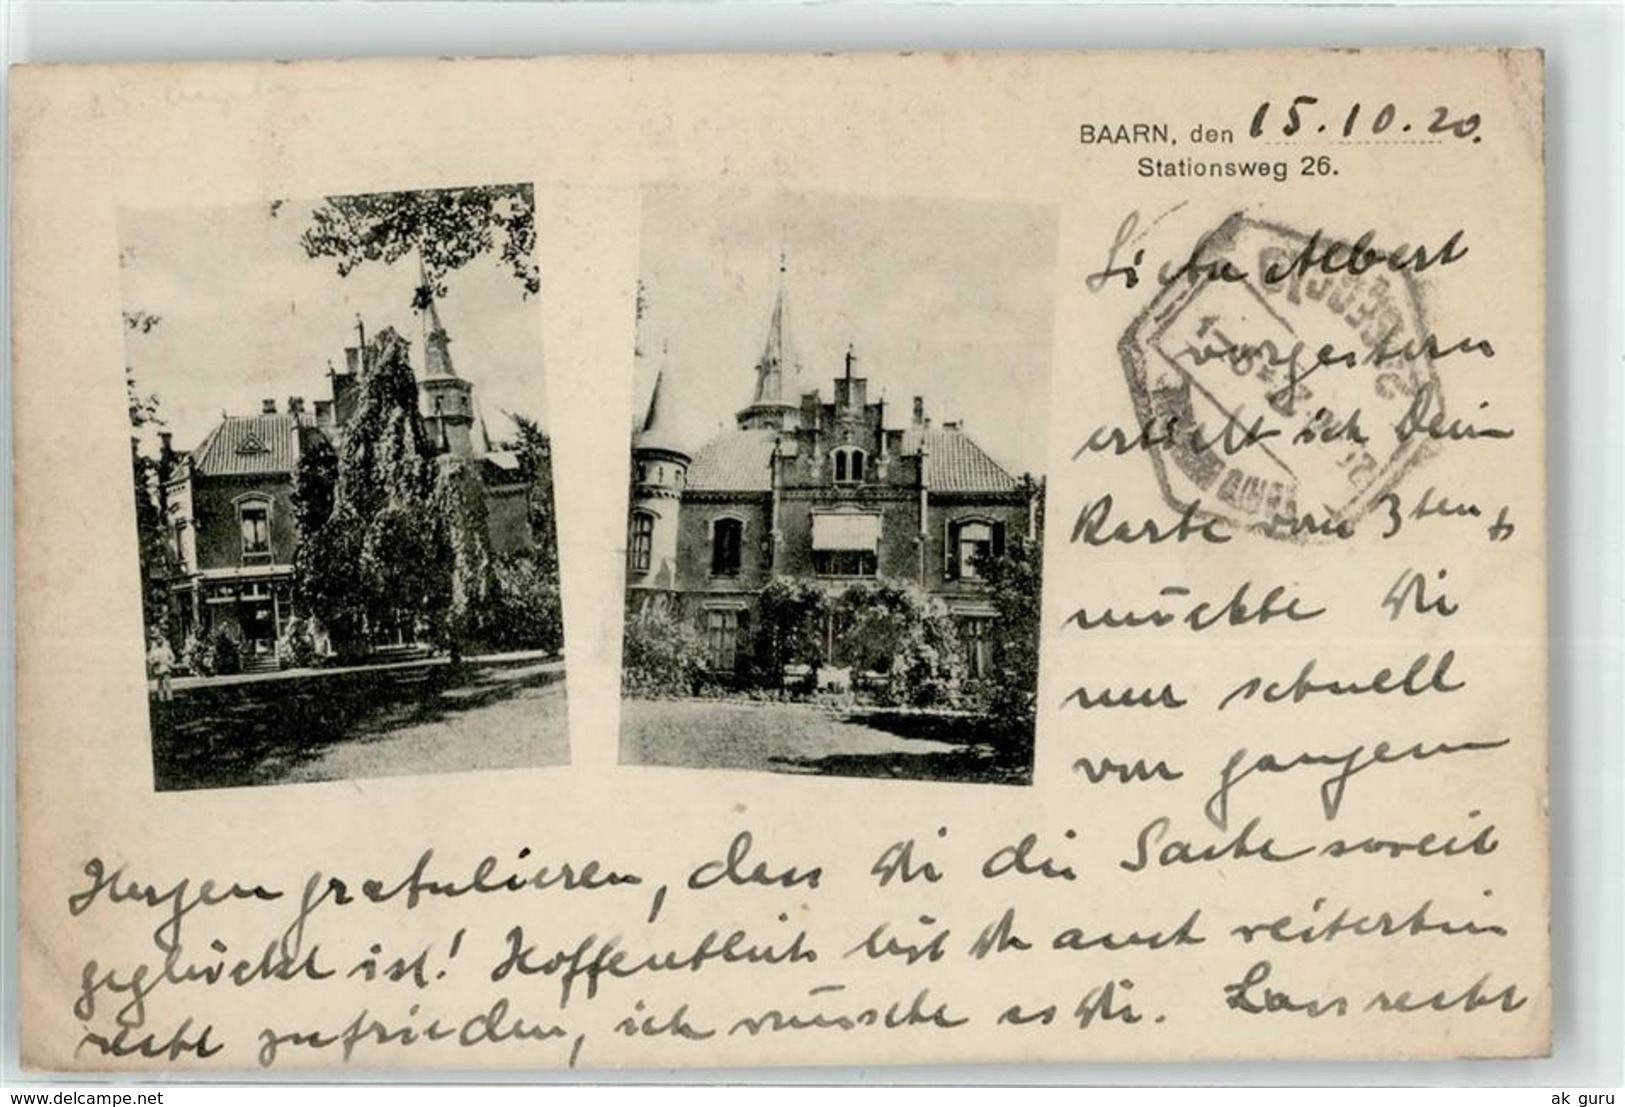 BAARN, den 15.10.20.
Stationsweg 26.
Liebe Albert
vorgestern
erhielt ich Dein
Karte vom 3ten +
möchte Dir
nur schnell
von ganzem
Herzen gratulieren, dass Dir die Sache soweit
geglückt ist! Hoffentlich bist Du auch weiterhin
recht zufrieden, ich wünsche es Dir. Lass recht
www.delcampe.net
ak_guru